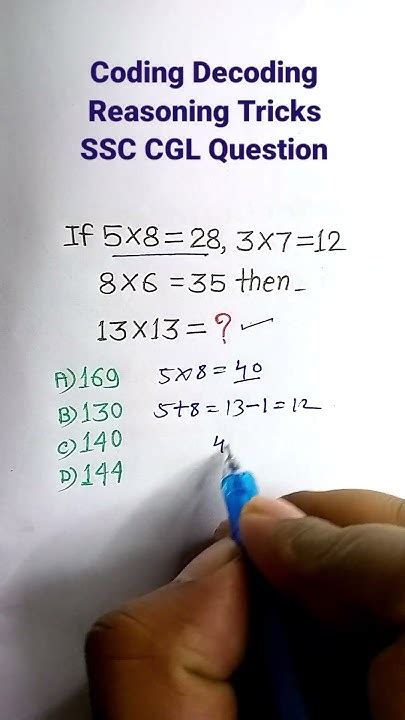 Coding Decoding
Reasoning Tricks
SSC CGL Question
If 5×8=28, 3×7=12
8×6=35 then_
13×13=? ✓
A) 169 5×8=40
B) 130 5+8=13-1=12
C) 140 4
D) 144